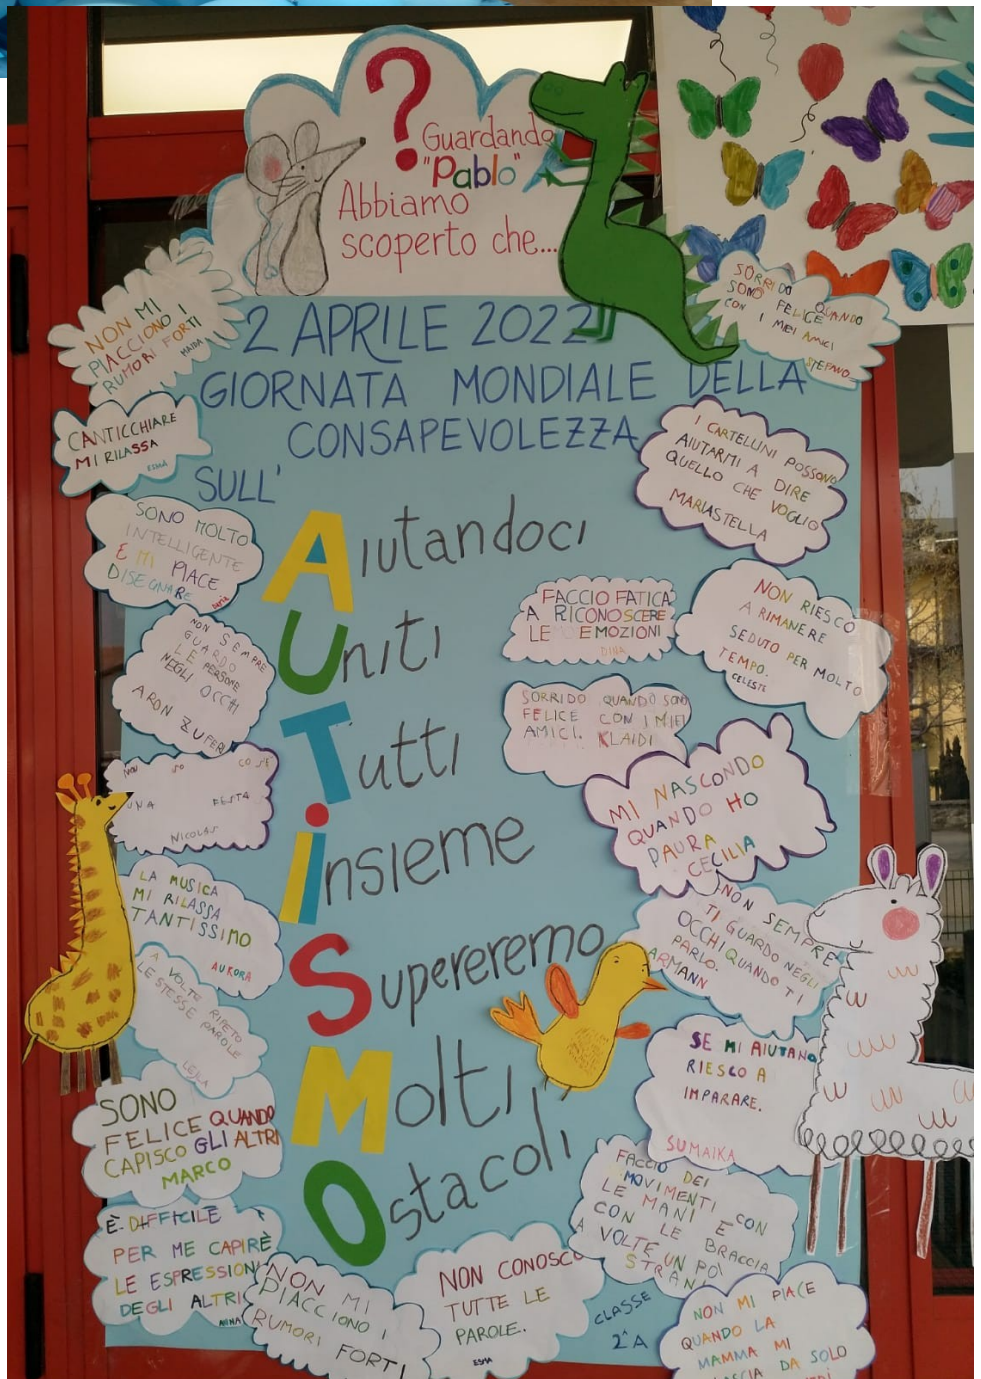 ?
Guardando
"Pablo"
Abbiamo
scoperto che...
2 APRILE 2022
GIORNATA MONDIALE DELLA
CONSAPEVOLEZZA
SULL'
Aiutandoci
Uniti
Tutti
insieme
Supereremo
Molti
Ostacoli
NON MI
PIACCIONO I
RUMORI FORTI
CANTICCHIARE
MI RILASSA
ESMA
SONO MOLTO
INTELLIGENTE
E MI PIACE
DISEGNARE
NON SEMPRE
GUARDO
LE PERSONE
NEGLI OCCHI
ARON ZUFERI
NON SO COS'È
UNA FESTA
NICOLAS
LA MUSICA
MI RILASSA
TANTISSIMO
AURORA
A VOLTE RIPETO
LE STESSE PAROLE
LEJLA
SONO
FELICE QUANDO
CAPISCO GLI ALTRI
MARCO
È DIFFICILE
PER ME CAPIRE
LE ESPRESSIONI
DEGLI ALTRI
NON MI
PIACCIONO I
RUMORI FORTI
NON CONOSCO
TUTTE LE
PAROLE.
ESMA
SORRIDO QUANDO
SONO FELICE
CON I MIEI AMICI
STEFANO
I CARTELLINI POSSONO
AIUTARMI A DIRE
QUELLO CHE VOGLIO
MARIASTELLA
FACCIO FATICA
A RICONOSCERE
LE EMOZIONI
DINA
NON RIESCO
A RIMANERE
SEDUTO PER MOLTO
TEMPO.
CELESTE
SORRIDO QUANDO SONO
FELICE CON I MIEI
AMICI. KLAIDI
MI NASCONDO
QUANDO HO
PAURA
CECILIA
NON SEMPRE
TI GUARDO NEGLI
OCCHI QUANDO TI
PARLO.
ARMANN
SE MI AIUTANO
RIESCO A
IMPARARE.
SUMAIKA
FACCIO DEI
MOVIMENTI CON
LE MANI E
CON LE BRACCIA
A VOLTE UN PO'
STRANI
CLASSE
2^A
NON MI PIACE
QUANDO LA
MAMMA MI
LASCIA DA SOLO